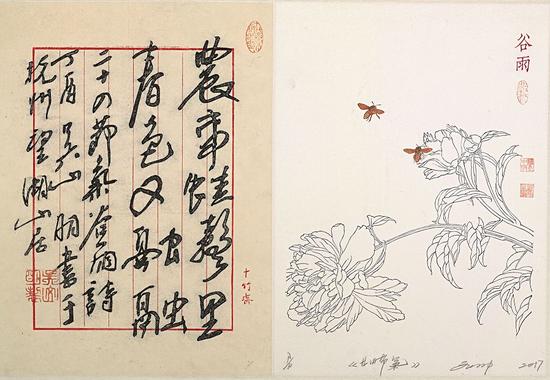 農事蛙聲里
春色
二十四節氣谷雨詩
丁酉吴山明書于
杭州望湖山居
十竹齋
谷雨
2017